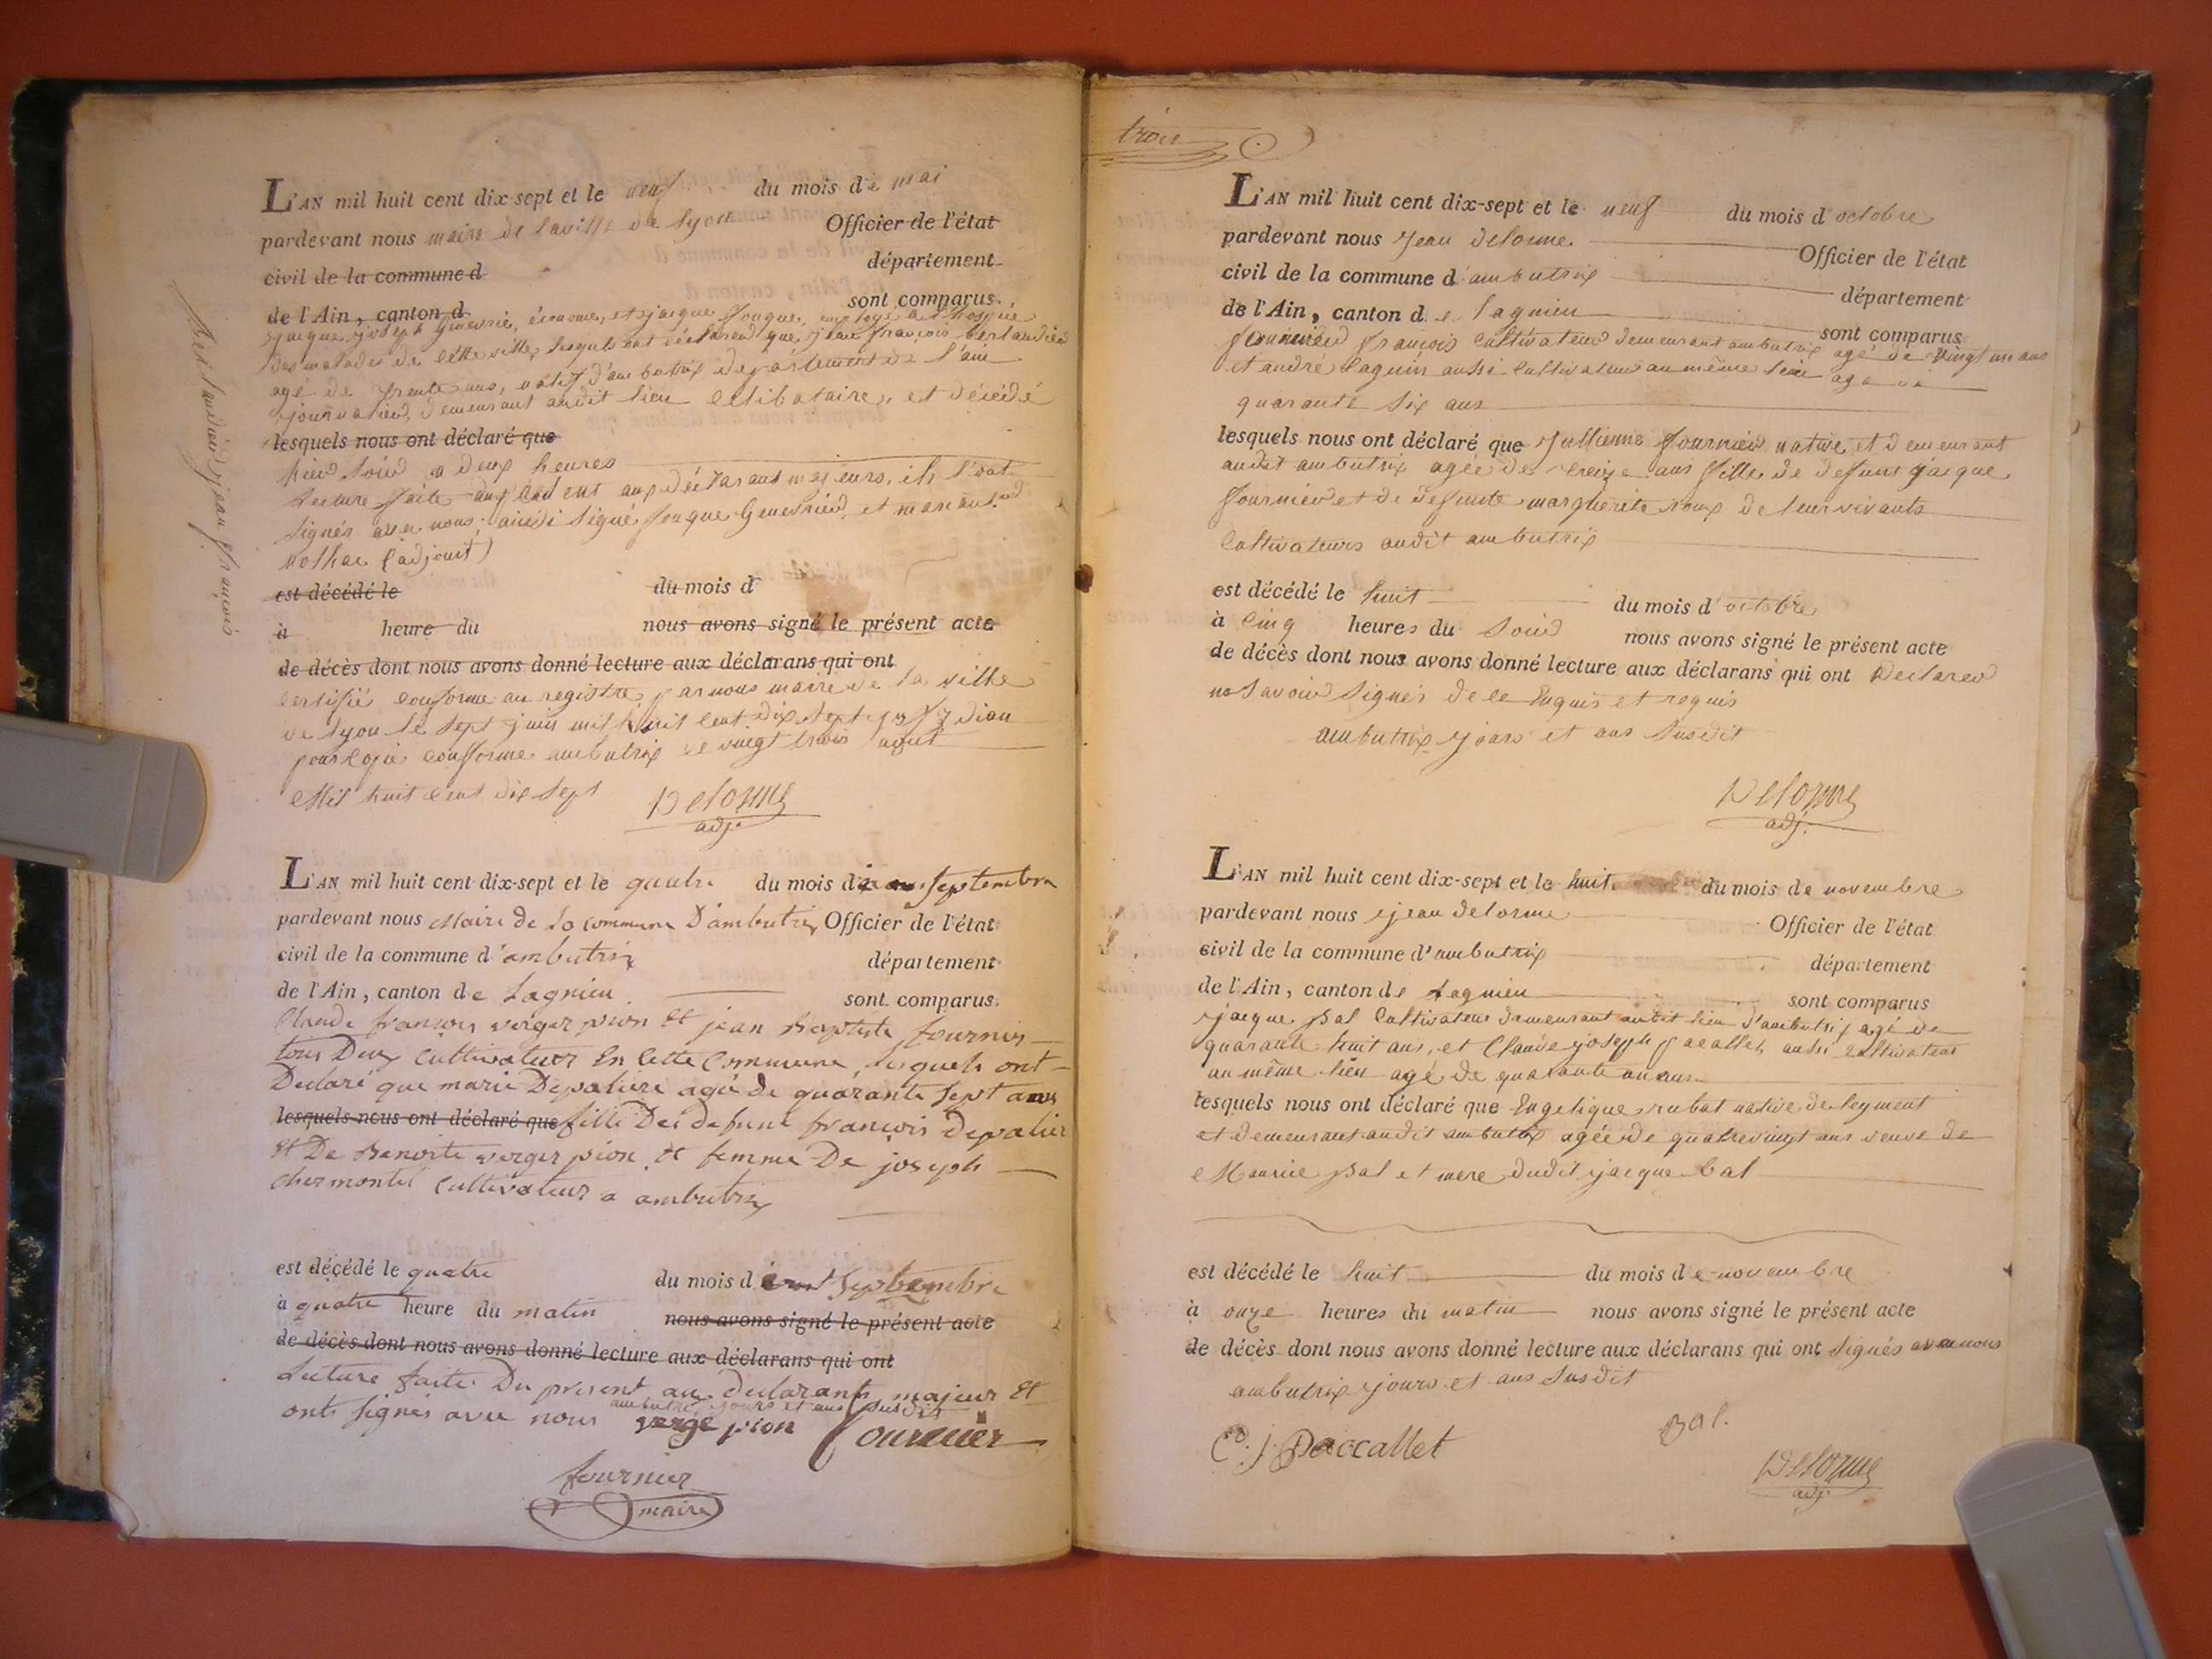 L'AN mil huit cent dix-sept et le neuf du mois de mai
pardevant nous maire de la ville de Lyon Officier de l'état
civil de la commune d
département
de l'Ain, canton d sont comparus
jacque joseph Genevrié, économe, et jacque fouque, employé a l'hospice
des malades de cette ville, lesquels ont déclared que jean françois berlandier
agé de trente ans, natif d'ambutrix département de l'ain
journalied, demeurant audit lieu celibataire, et décédé
lesquels nous ont déclaré que
hier soir a deux heures
Lecture faite du aux déclarants majeurs, ils l'ont
signés avec nous; ainsi signé fouque Genevried, et
nolhac (adjoint)
est décédé le du mois d
à heure du nous avons signé le présent acte
de décès dont nous avons donné lecture aux déclarans qui ont
certifié conforme au registre par nous maire de la ville
de Lyon le sept juin mil huit cent dix sept
pour copie conforme ambutrix le vingt trois aout
Mil huit cent dix sept Delorme
adj.
Berlandier jean françois
L'AN mil huit cent dix-sept et le quatre du mois de septembre
pardevant nous Maire de La commune D'ambutrix Officier de l'état
civil de la commune d'ambutrix département
de l'Ain, canton de Lagnieu sont comparus
Claude françois verger pion et jean Baptiste fournier
tous Deux Cultivateur En Cette Commune, lesquels ont
Declaré que marie Depaliere agée de quarante sept ans
lesquels nous ont déclaré que fille De defunt francois depalier
et De Benoite verger pion et femme De joseph
chermontel Cultivateur a ambutrix
est décédé le quatre du mois d Septembre
à quatre heure du matin nous avons signé le présent acte
de décès dont nous avons donné lecture aux déclarans qui ont
Lecture faite Du present aux declarants majeur et
ambutrix jours et ans susdit
onts signés avec nous verge pion fournier
fournier
maire
trois
L'AN mil huit cent dix-sept et le neuf du mois d'octobre
pardevant nous jean delorme Officier de l'état
civil de la commune d'ambutrix
département
de l'Ain, canton de lagnieu
sont comparus
françois cultivateur demeurant ambutrix agé de vingt un ans
et andré laguin aussi cultivateur au même lieu agé de
quarante six ans
lesquels nous ont déclaré que Jullienne fournier native et demeurant
audit ambutrix agée de treize ans fille de defunt jacque
fournier et de defunte marguerite roux de leur vivants
cultivateurs audit ambutrix
est décédé le huit du mois d'octobre
à cinq heures du soir nous avons signé le présent acte
de décès dont nous avons donné lecture aux déclarans qui ont Declared
ne savoir signés de ce Enquis et requis
ambutrix jours et ans susdit
Delorme
adj.
L'AN mil huit cent dix-sept et le huit du mois de novembre
pardevant nous jean delorme Officier de l'état
civil de la commune d'ambutrix département
de l'Ain, canton de Lagnieu sont comparus
jacque Bal Cultivateur demeurant audit lieu d'ambutrix agé de
quarante huit ans, et Claude joseph pacallet, aussi cultivateur
au même lieu agé de quarante un ans
lesquels nous ont déclaré que Engelique rubat native de leyment
et demeurant audit ambutrix agée de quatrevingt ans veuve de
Maurice Bal et mere dudit jacque bal
est décédé le huit du mois de novembre
à onze heures du matin nous avons signé le présent acte
de décès dont nous avons donné lecture aux déclarans qui ont signés avec nous
ambutrix jours et ans susdit
C. J. Paccallet Bal.
Delorme
adj.